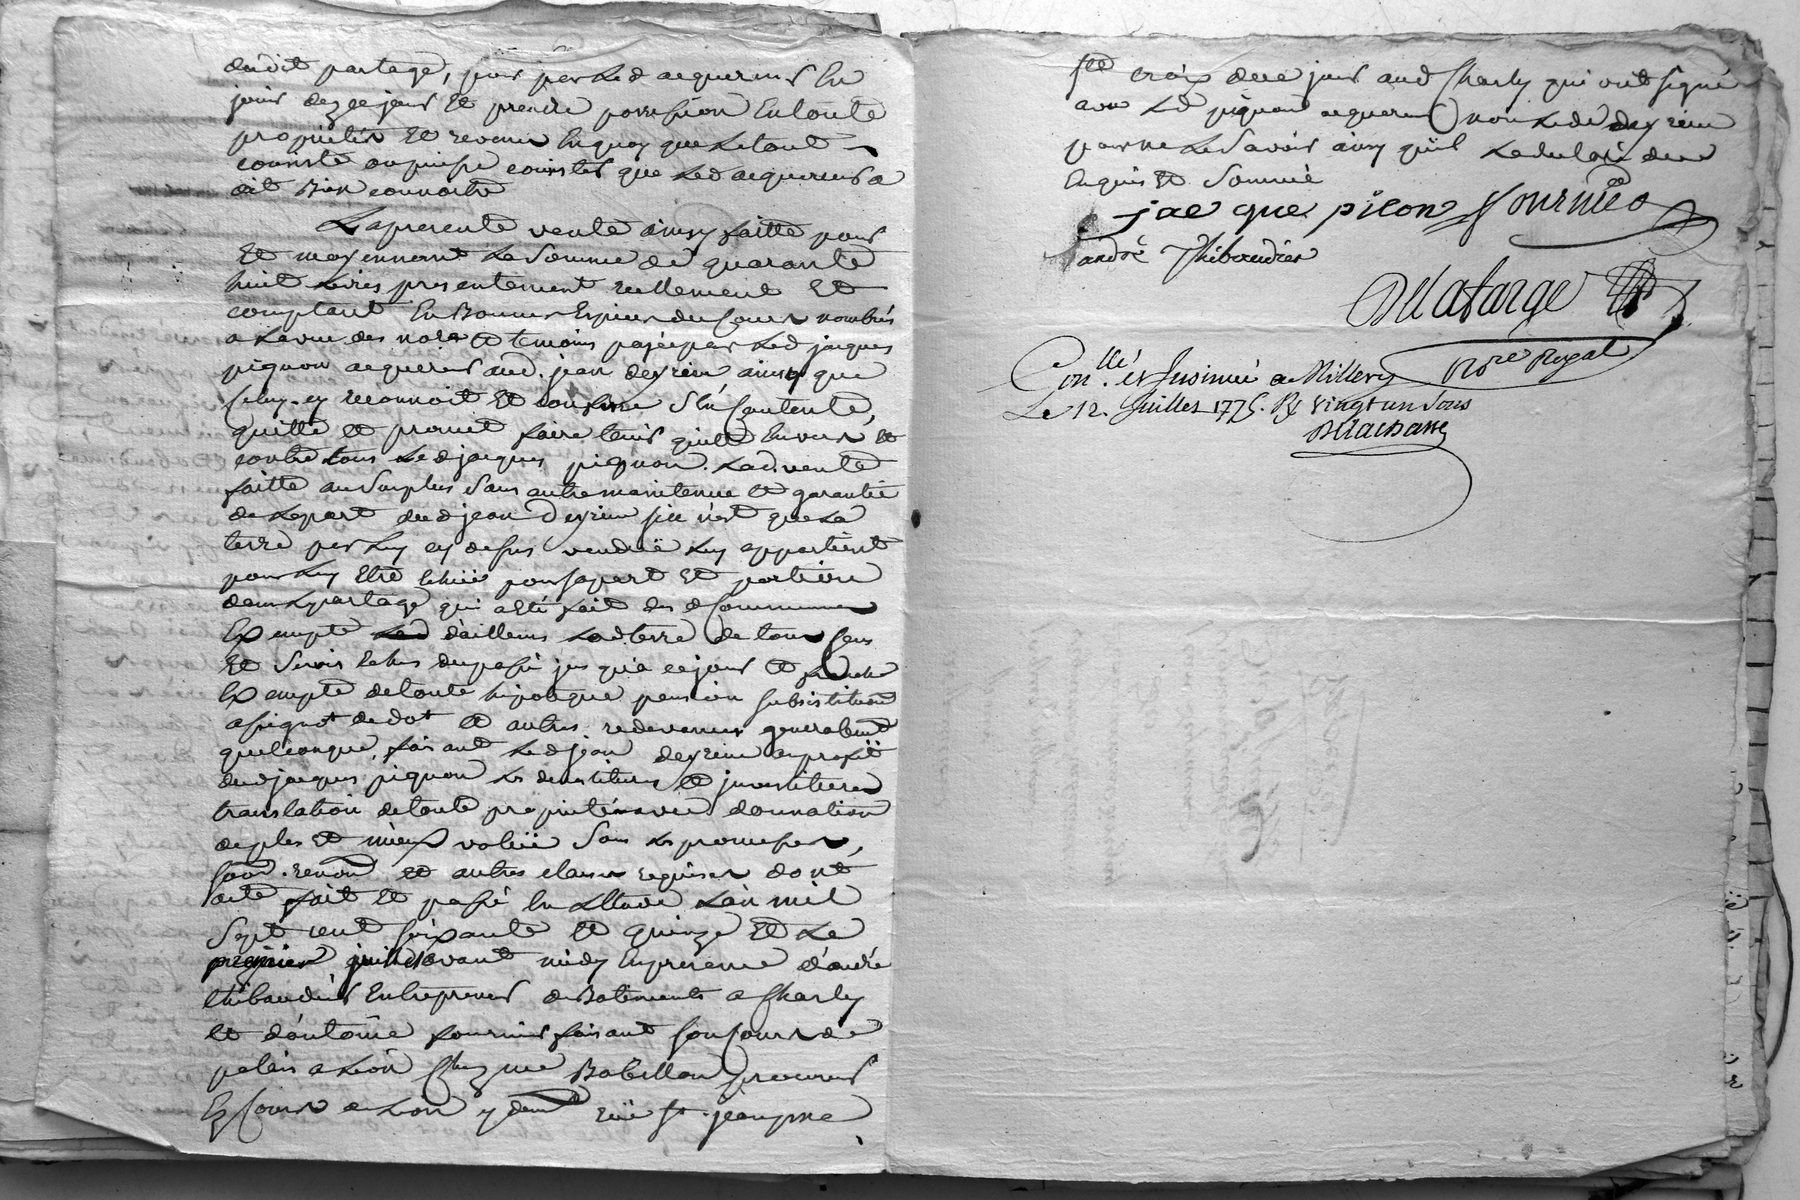 dudit partage, pour par led acquereur En
jouir dez ce jour Et prendre possession En toute
proprieter Et revenu En quoy que le tout
consiste ou puisse consister que led acquereur a
dit Bien connoitre
La presente vente ainsy faitte pour
Et moyennant La Somme de quarante
huit Livres presentement reellement Et
comptant En Bonnes Espèces du Cours nombrés
a La vue des nores et temoins payée par Led jacques
pignon acquereur aud. jean deyrieu ainsy que
Celuy cy reconnoit Et confesse S'en Contente,
quitte et promet faire tenir quitte Envers et
contre tous Led jacques pignon. Lad. vente
faitte au Surplus Sans autre maintenue et garantie
de La part dud jean deyrieu Si ce n'est que La
terre par Luy cy dessus venduë Luy appartient
pour Luy Etre Echüe pour sa part Et portion
dans Le partage qui a Eté fait des d Communes
Exempte d'ailleurs Lad terre de tous Cens
Et Servis Echus du passé jusqu'a ce jour et franche
Exempte de toute hipoteque pension Substitution
assignat de dot et autres redevances generalemt
quelconque, faisant Led jean deyrieu au profit
dud jacques pignon Les devestitures et investitures
translation de toute proprieté avec donnation
de plus Et mieux valüe Sous Les promesses,
Soum. renon et autres clauses requises dont
acte fait Et passé En L'Etude L'an mil
Sept cent Soixante et quinze Et Le
premier juillet avant midy En presence d'andré
thibaudier Entrepreneur de Batiments a Charly
et d'antoine fournier faisant Son Cours de
palais a Lion Chez me Babillon procureur
Ez Cours de Lion y demt rüe St. jean psse
Ste croix de ce jour aud Charly qui ont Signé
avec Led pignon acquereur non Led deyrieu
pour ne Le Savoir ainsy qu'il La declaré de ce
Enquis Et Sommé
jacque picon fournier
andré Thibaudier
Delafarge
Nore Royal
Conllé et Insinué a Millery
Le 12. Juillet 1775. Rx vingt un Sous
Delachasse